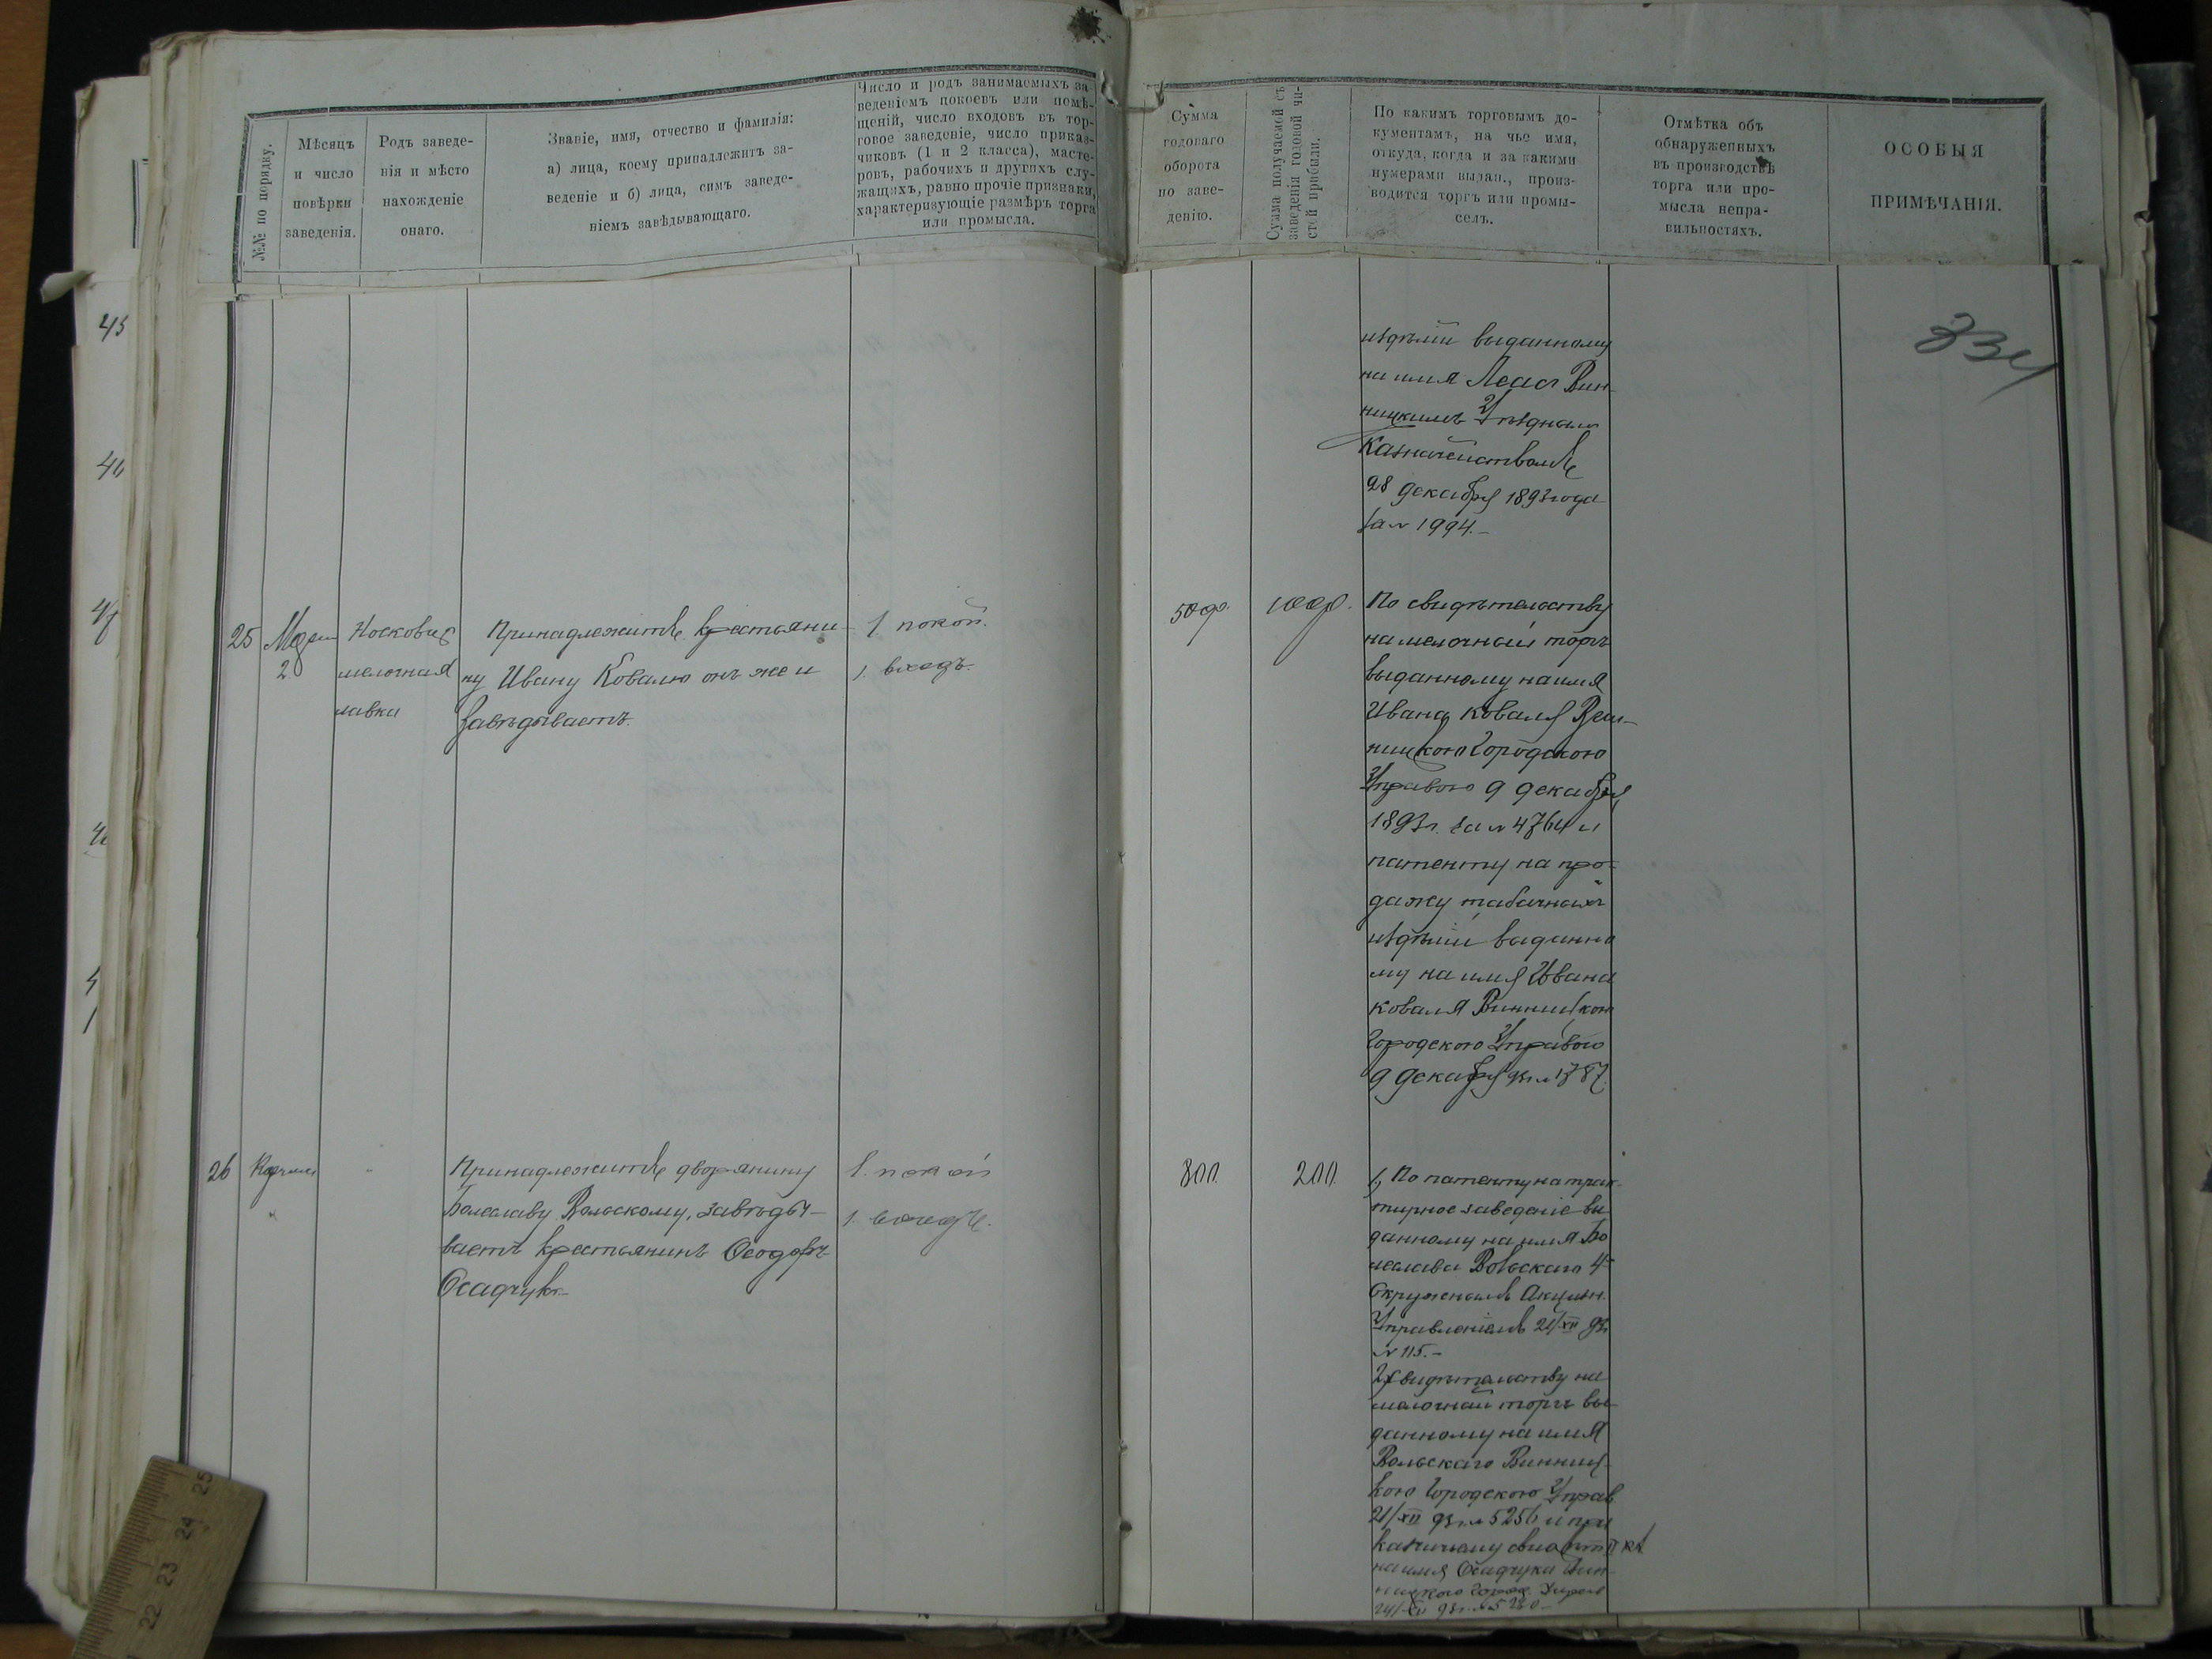 №№ по порядку.
Мѣсяцъ
и число
повѣрки
заведенія.
Родъ заведе-
нія и мѣсто
нахожденіе
онаго.
Званіе, имя, отчество и фамилія:
а) лица, коему принадлежитъ за-
веденіе и б) лица, симъ заведе-
ніемъ завѣдывающаго.
Число и родъ занимаемыхъ за-
веденіемъ покоевъ или помѣ-
щеній, число входовъ въ тор-
говое заведеніе, число приказ-
чиковъ (1 и 2 класса), масте-
ровъ, рабочихъ и другихъ слу-
жащихъ, равно прочіе признаки,
характеризующіе размѣръ торга
или промысла.
Сумма
годоваго
оборота
по заве-
денію.
Сумма получаемой съ
заведенія годовой чи-
стой прибыли.
По какимъ торговымъ до-
кументамъ, на чье имя,
откуда, когда и за какими
нумерами выдан., произ-
водится торгъ или промы-
селъ.
Отмѣтка объ
обнаруженныхъ
въ производствѣ
торга или про-
мысла непра-
вильностяхъ.
ОСОБЫЯ
ПРИМѢЧАНІЯ.
334
издѣлій выданному
на имя Вин-
ницкимъ Уѣзднымъ
Казначействомъ
28 декабря 1893 года
за № 1994.-
25
2
мелочная
лавка
Принадлежитъ крестьяни-
ну Ивану Ковалю онъ же и
завѣдываетъ.
1 покой.
1. входъ.
500р.
100р.
По свидѣтельству
на мелочный торгъ
выданному на имя
Ивана Коваля Вин-
ницкою Городскою
Управою 9 декабря
1893г. за № 4764 и
патенту на про-
дажу табачныхъ
издѣлій выданно
му на имя Ивана
Коваля Винницкою
Городскою Управою
9 декабря 93г. № 1787.
26
Корчма
"
"
Принадлежитъ дворянину
Болеславу Вольскому, завѣды-
ваетъ крестьянинъ Ѳеодоръ
Осадчукъ.-
1. покой
1. входъ.
800.
200.
1, По патенту на трак-
тирное заведеніе вы
данному на имя Бо
леслава Вольскаго 4
Окружнымъ Акцизн.
Управленіемъ 21/XII 93г
№ 115.-
2, свидѣтельству на
мелочный торгъ вы-
данному на имя
Вольскаго Винниц-
кою Городскою Управ
21/XII 93г. № 5256 и при
казчичьему II кл
на имя Осадчука Вин-
ницкою Город. Управ